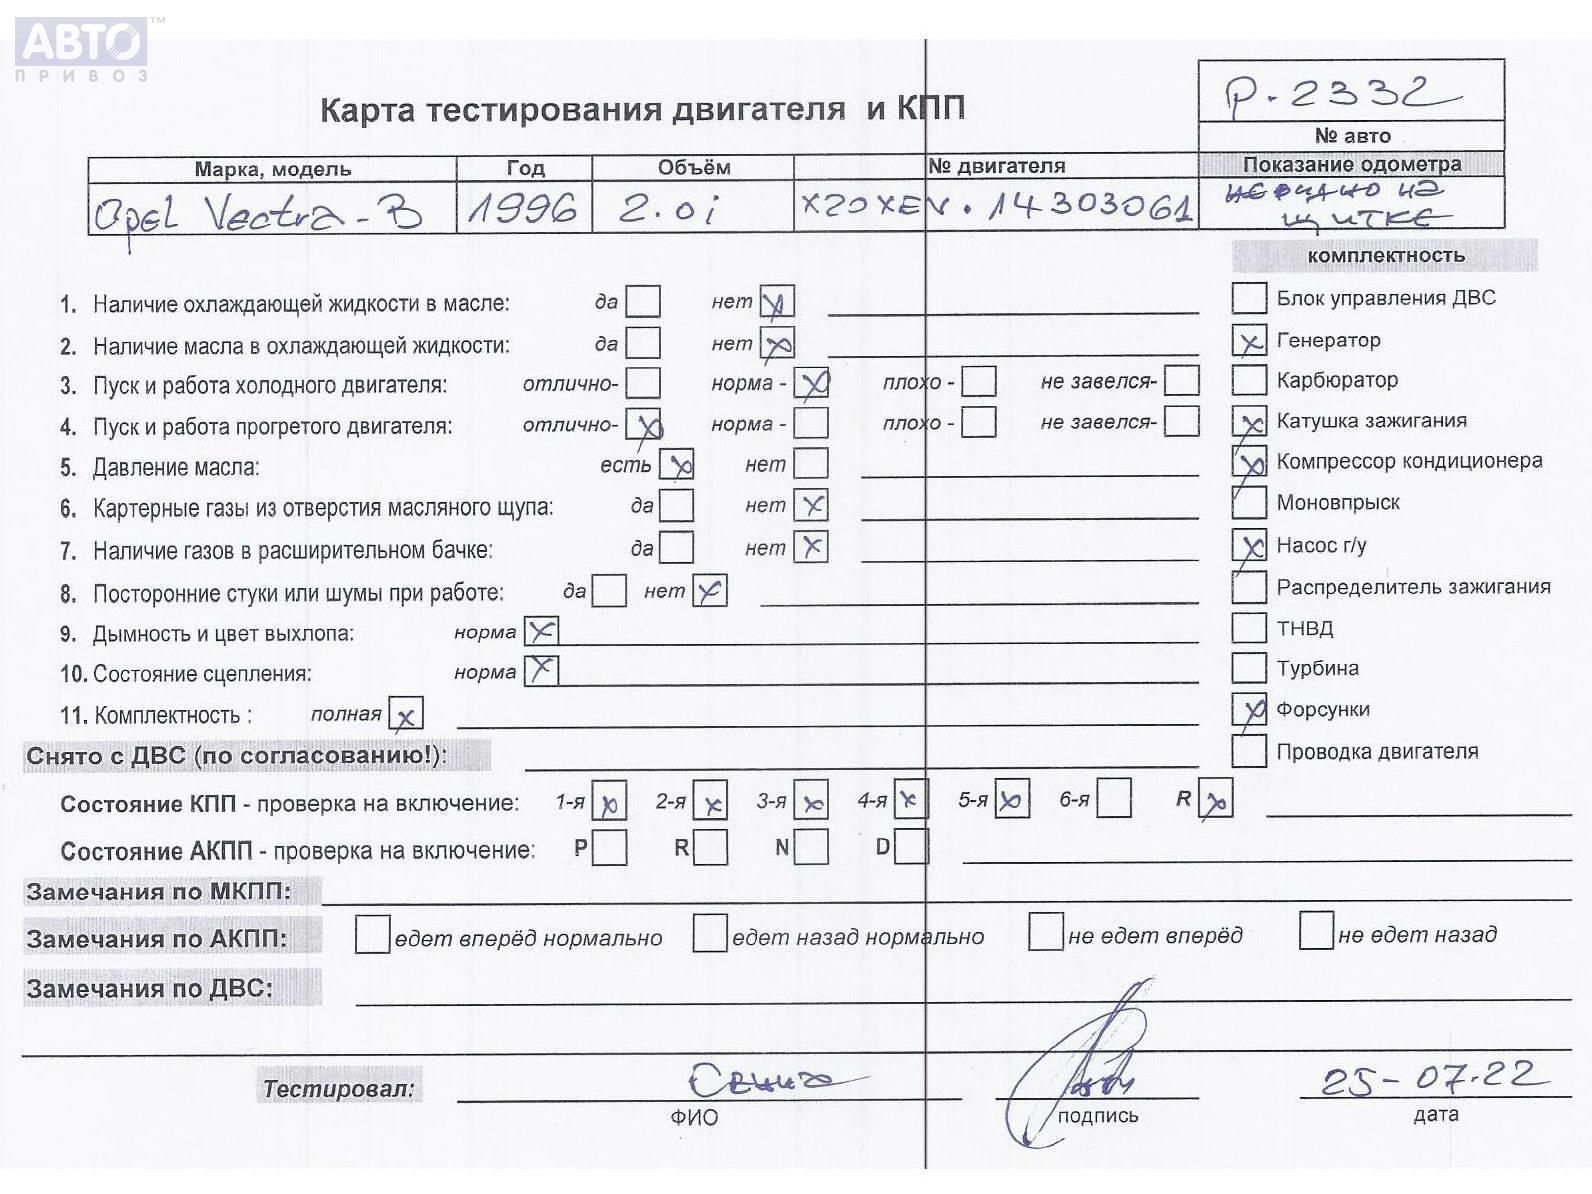 АВТО™
ПРИВОЗ
Р-2332
Карта тестирования двигателя и КПП
№ авто
Марка, модель Год Объём № двигателя Показание одометра
Opel Vectra-B 1996 2.0i X20XEV. 14303061 не видно на
щитке
комплектность
1. Наличие охлаждающей жидкости в масле: да нет x Блок управления ДВС
2. Наличие масла в охлаждающей жидкости: да нет x x Генератор
3. Пуск и работа холодного двигателя: отлично- норма - x плохо - не завелся- Карбюратор
4. Пуск и работа прогретого двигателя: отлично- x норма - плохо - не завелся- x Катушка зажигания
5. Давление масла: есть x нет x Компрессор кондиционера
6. Картерные газы из отверстия масляного щупа: да нет x Моновпрыск
7. Наличие газов в расширительном бачке: да нет x x Насос г/у
8. Посторонние стуки или шумы при работе: да нет x Распределитель зажигания
9. Дымность и цвет выхлопа: норма x ТНВД
10. Состояние сцепления: норма x Турбина
11. Комплектность : полная x x Форсунки
Снято с ДВС (по согласованию!): Проводка двигателя
Состояние КПП - проверка на включение: 1-я x 2-я x 3-я x 4-я x 5-я x 6-я R x
Состояние АКПП - проверка на включение: P R N D
Замечания по МКПП:
Замечания по АКПП: едет вперёд нормально едет назад нормально не едет вперёд не едет назад
Замечания по ДВС:
Тестировал: 25-07.22
ФИО подпись дата